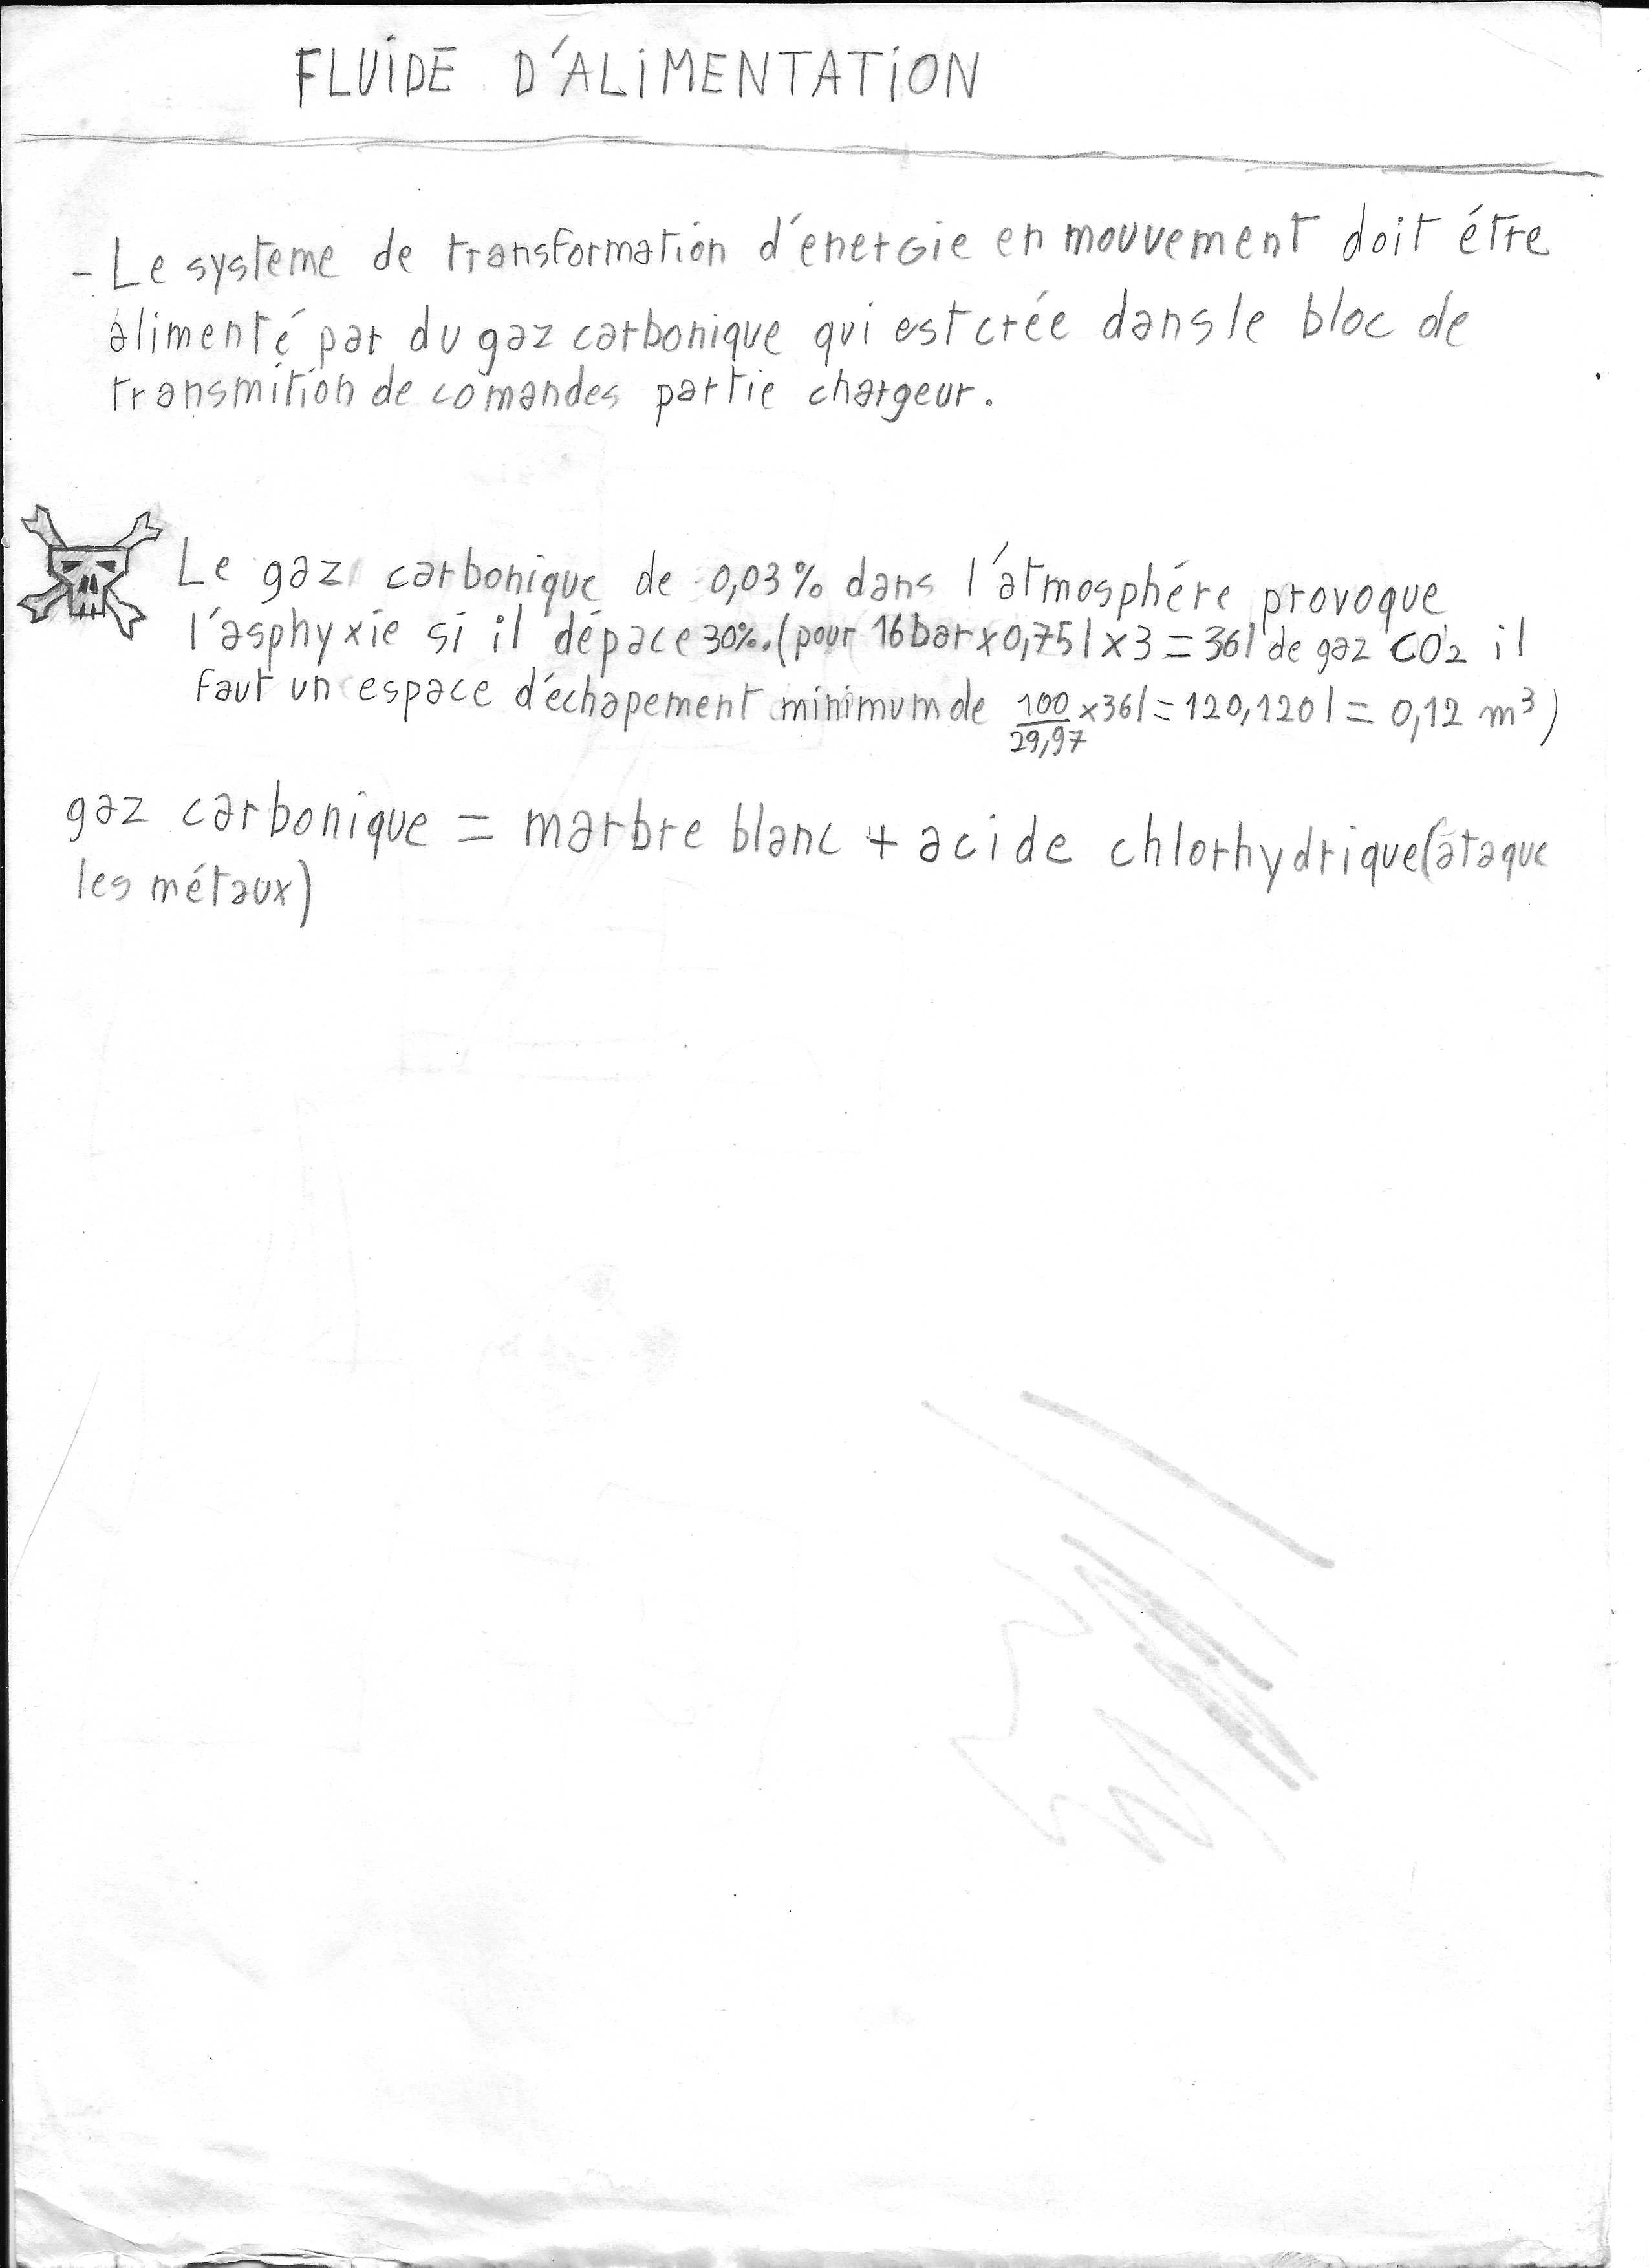 FLUIDE D'ALIMENTATION
- Le systeme de transformation d'énergie en mouvement doit étre
alimenté par du gaz carbonique qui est crée dans le bloc de
transmition de comandes partie chargeur.
Le gaz carbonique de 0,03% dans l'atmosphére provoque
l'asphyxie si il dépace 30%. (pour 16bar x 0,75l x 3 = 36l de gaz CO2 il
faut un espace d'échapement minimum de 100/29,97 x 36l = 120,120l = 0,12 m³)
gaz carbonique = marbre blanc + acide chlorhydrique (ataque
les métaux)